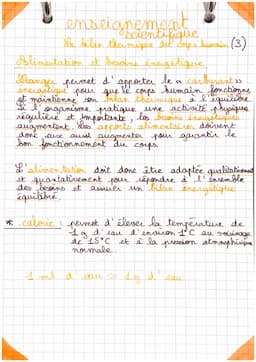 enseignement
scientifique
Un bilan thermique du corps humain (3)
Alimentation et besoins énergétique
Manger permet d'apporter le « carburant »
énergétique pour que le corps humain fonctionne
et maintienne son bilan thermique à l'équilibre
Si l'organisme pratique une activité physique
régulière et importante, les besoins énergétiques
augmentent. Les apports alimentaires doivent
donc eux aussi augmenter pour garantir le
bon fonctionnement du corps.
L'alimentation doit donc être adaptée qualitativement
et quantativement pour répondre à l'ensemble
des besoins et assurer un bilan énergétique
équilibré.
* calorie : permet d'élever la température de
1 g d'eau d'environ 1°C au voisinage
de 15°C et à la pression atmosphérique
normale.
1 ml d'eau = 1 g d'eau